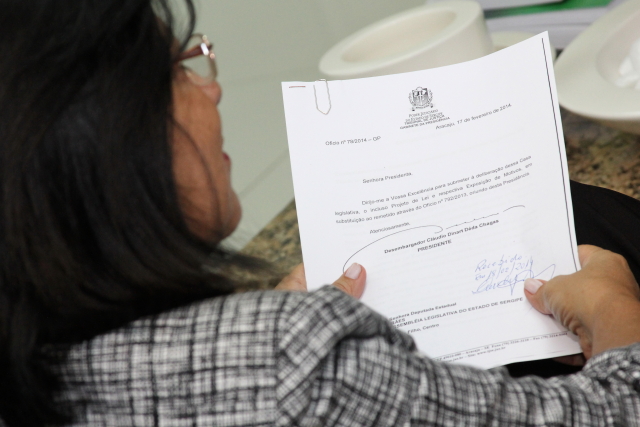 TRIBUNAL DE JUSTIÇA
GABINETE DA PRESIDÊNCIA
Aracaju, 17 de fevereiro de 2014
Ofício nº 78/2014 – GP
Senhora Presidente,
Dirijo-me a Vossa Excelência para submeter à deliberação dessa Casa
legislativa, o incluso Projeto de Lei e respectiva Exposição de Motivos, em
substituição ao remetido através do Ofício nº 792/2013, oriundo desta Presidência.
Atenciosamente,
Desembargador Cláudio Dinart Déda Chagas
PRESIDENTE
Recebido
Deputada Estadual
LEGISLATIVA DO ESTADO DE SERGIPE
Centro